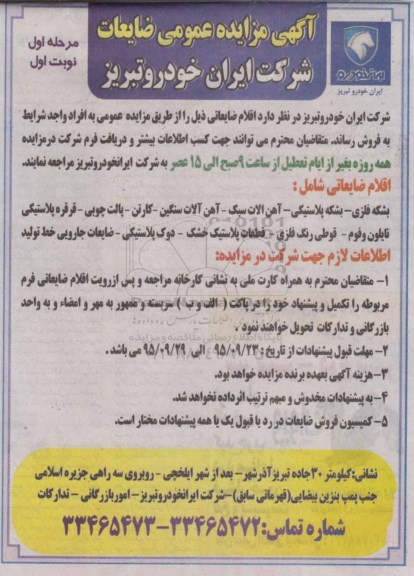 آگهی مزایده عمومی ضایعات
شرکت ایران خودرو تبریز
مرحله اول
نوبت اول
ایران خودرو تبریز
شرکت ایران خودروتبریز در نظر دارد اقلام ضایعاتی ذیل را از طریق مزایده عمومی به افراد واجد شرایط
به فروش رساند. متقاضیان محترم می توانند جهت کسب اطلاعات بیشتر و دریافت فرم شرکت درمزایده
همه روزه بغیر از ایام تعطیل از ساعت ۹صبح الی ۱۵ عصر به شرکت ایرانخودروتبریز مراجعه نمایند.
اقلام ضایعاتی شامل :
بشکه فلزی– بشکه پلاستیکی– آهن الات سبک - آهن آلات سنگین -کارتن - پالت چوبی - قرقره پلاستیکی
نایلون وفوم - قوطی رنگ فلزی - قطعات پلاستیک خشک - دوک پلاستیکی- ضایعات جارویی خط تولید
اطلاعات لازم جهت شرکت در مزایده:
۱- متقاضیان محترم به همراه کارت ملی به نشانی کارخانه مراجعه و پس ازرویت اقلام ضایعاتی فرم
مربوطه را تکمیل و پیشنهاد خود را در پاکت ( الف و ب ) سربسته و ممهور به مهر و امضاء و به واحد
بازرگانی و تدارکات تحویل خواهند نمود .
۲- مهلت قبول پیشنهادات از تاریخ : ۹۵/۰۹/۲۳ الی ۹۵/۰۹/۲۹ می باشد .
۳- هزینه آگهی بعهده برنده مزایده خواهد بود.
۴- به پیشنهادات مخدوش و مبهم ترتیب اثرداده نخواهد شد.
۵- کمیسیون فروش ضایعات در رد یا قبول یک یا همه پیشنهادات مختار است.
نشانی:کیلومتر ۳۰جاده تبریزآذرشهر - بعد از شهر ایلخچی - روبروی سه راهی جزیره اسلامی
جنب پمپ بنزین بیضایی(قهرمانی سابق) –شرکت ایرانخودروتبریز– اموربازرگانی - تدارکات
شماره تماس:۳۳۴۶۵۴۷۲–۳۳۴۶۵۴۷۳